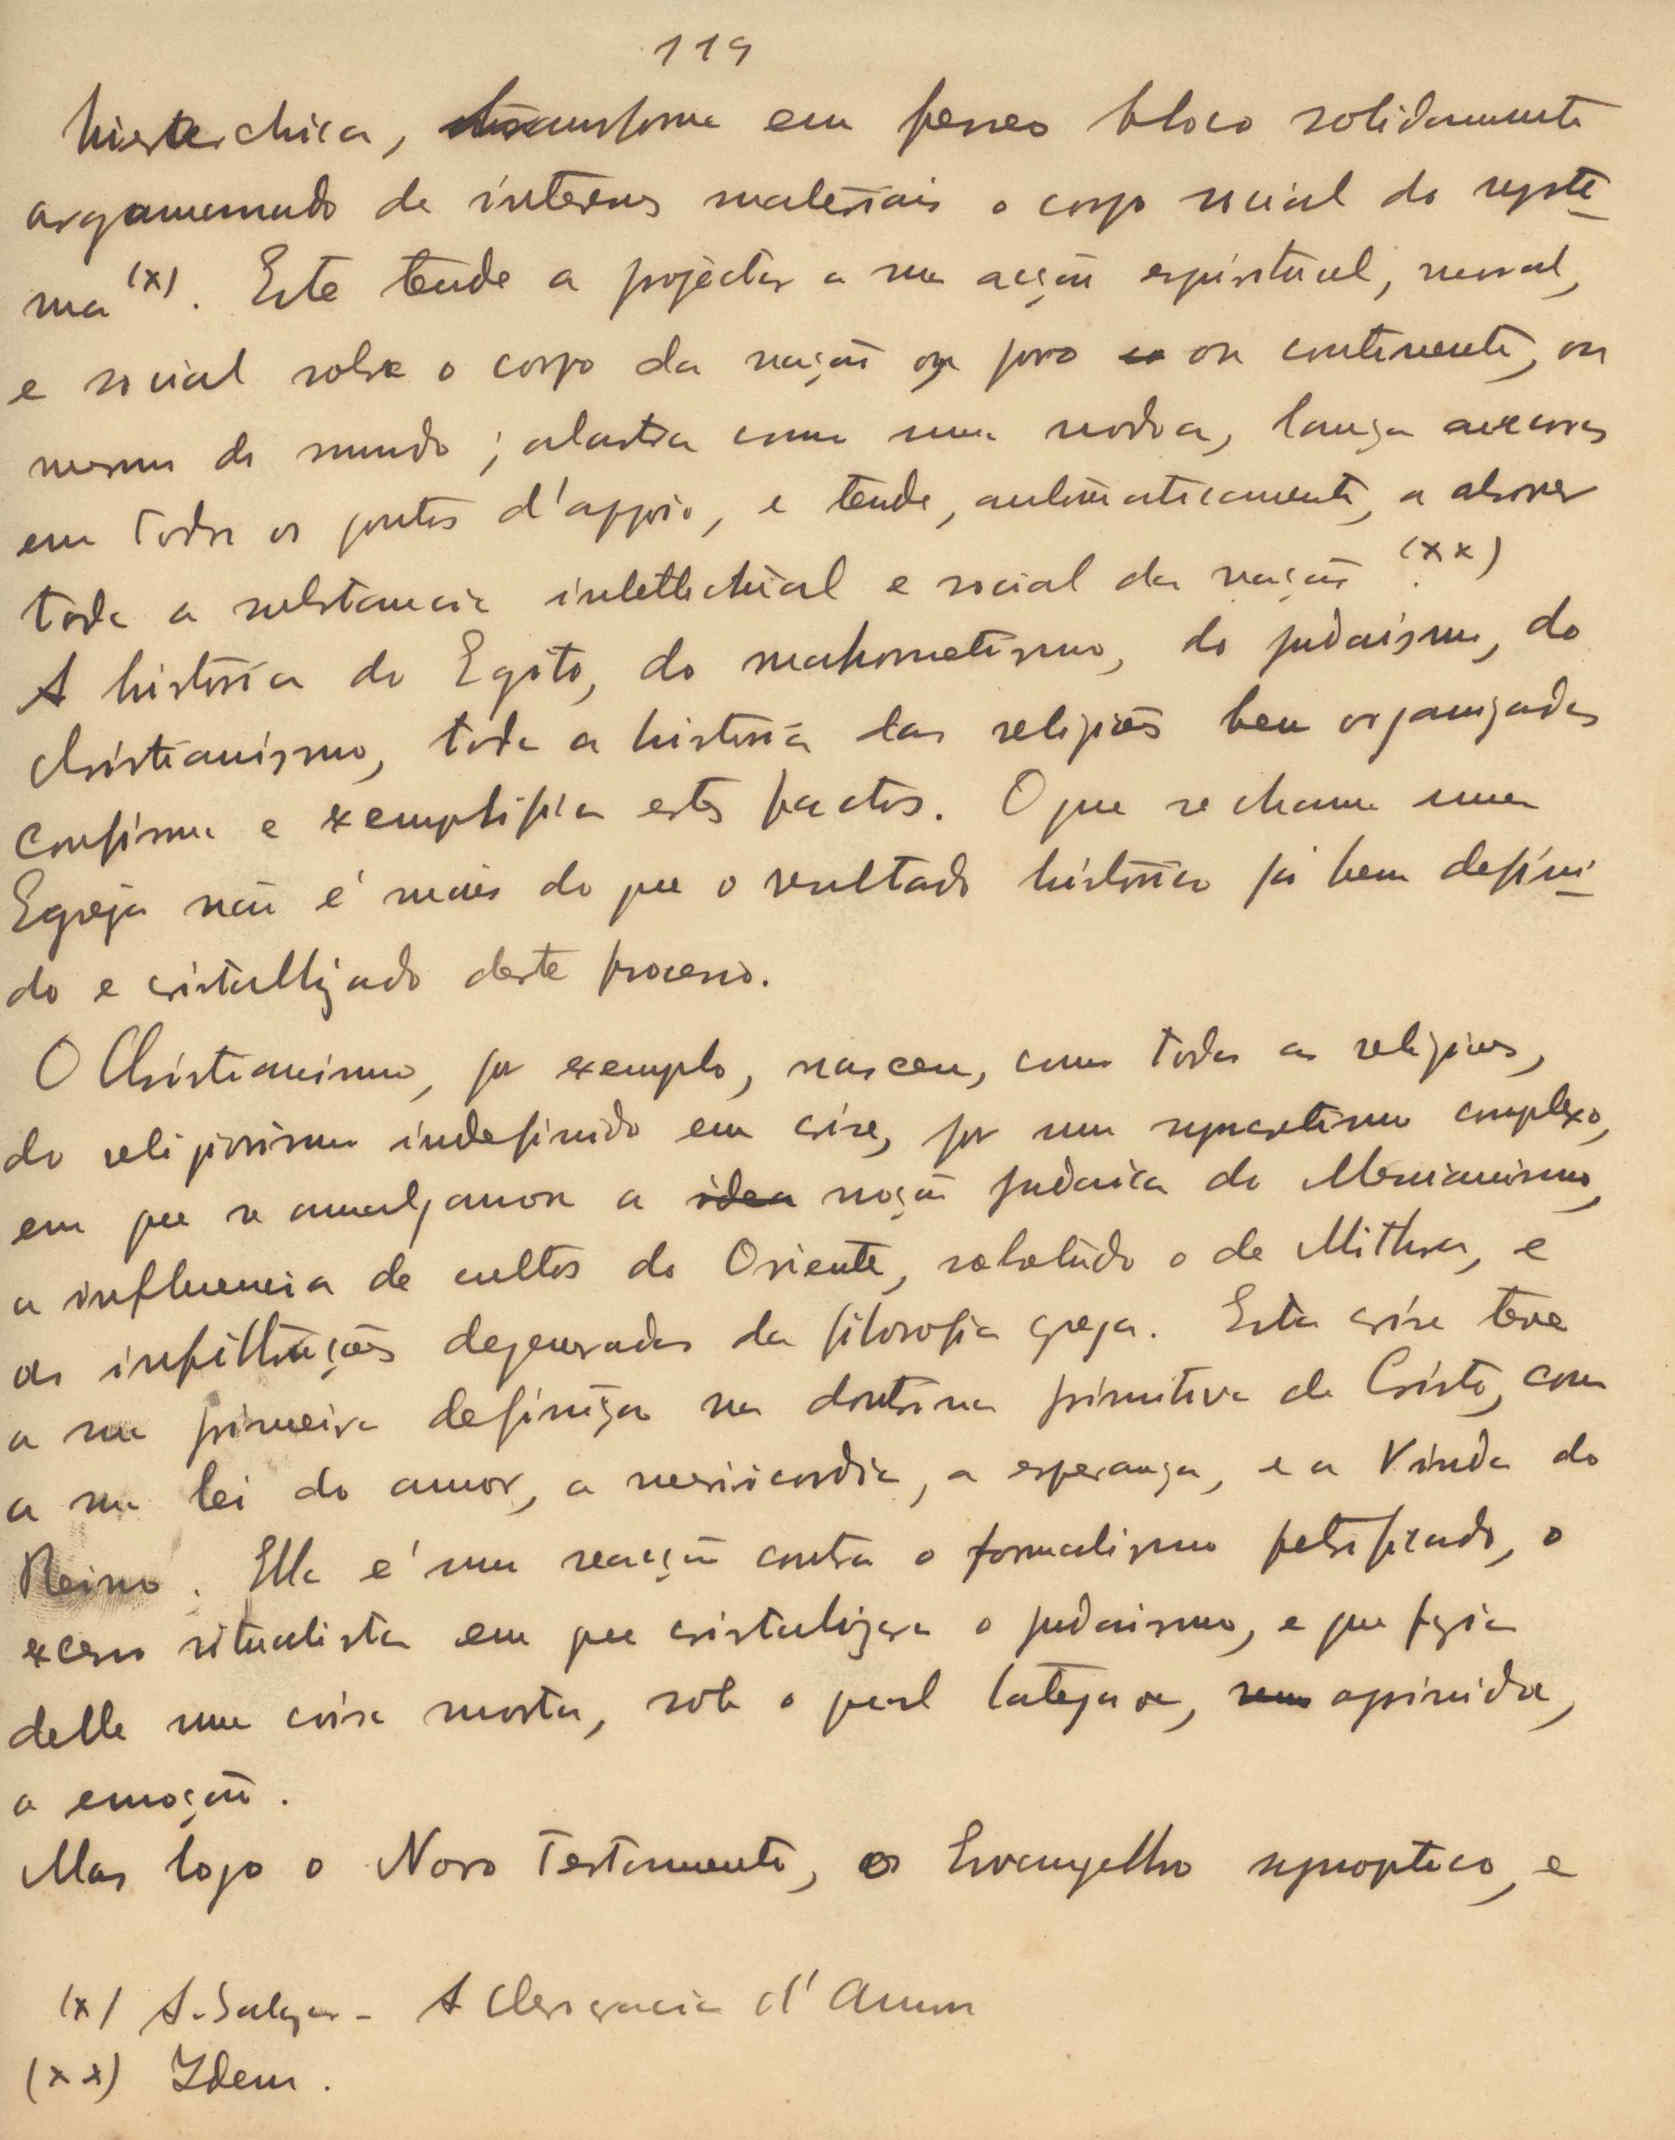 119
hierarchica, transforma em ferreo bloco solidamente
argamassado de interesses materiais o corpo social do syste-
ma (x). Este tende a projectar a sua acção espiritual, moral,
e social sobre o corpo da nação ou povo ou continente, ou
mesmo do mundo; alastra como uma nodoa, lança ancoras
em todos os pontos d'appoio, e tende, automaticamente, a absorver
toda a substancia intellectual e social da nação (xx).
A historia do Egito, do mahometismo, do judaismo, do
christianismo, toda a historia das religiões bem organizadas
confirma e exemplifica estes factos. O que se chama uma
Egreja não é mais do que o resultado histórico já bem defini-
do e cristallizado deste processo.
O Christianismo, por exemplo, nasceu, como todas as religiões,
do religiosismo indefinido em crise, por um syncretismo complexo,
em que se amalgamou a idea noção judaica do Messianismo,
a influencia de cultos do Oriente, sobretudo o de Mithra, e
as infiltrações degeneradas da filosofia grega. Esta crise teve
a sua primeira definição na doutrina primitiva de Cristo, com
a sua lei do amor, a misericordia, a esperança, e a Vinda do
Reino. Ella é uma reacção contra o formalismo petrificado, o
excesso ritualista em que cristalizara o judaismo, e que fazia
delle uma coisa morta, sob o qual latejava, aprimida,
a emoção.
Mas logo o Novo Testamento, os Evangelho synoptico, e
(x) A. Salazar - A Clerocracia d'Amon
(xx) Idem.